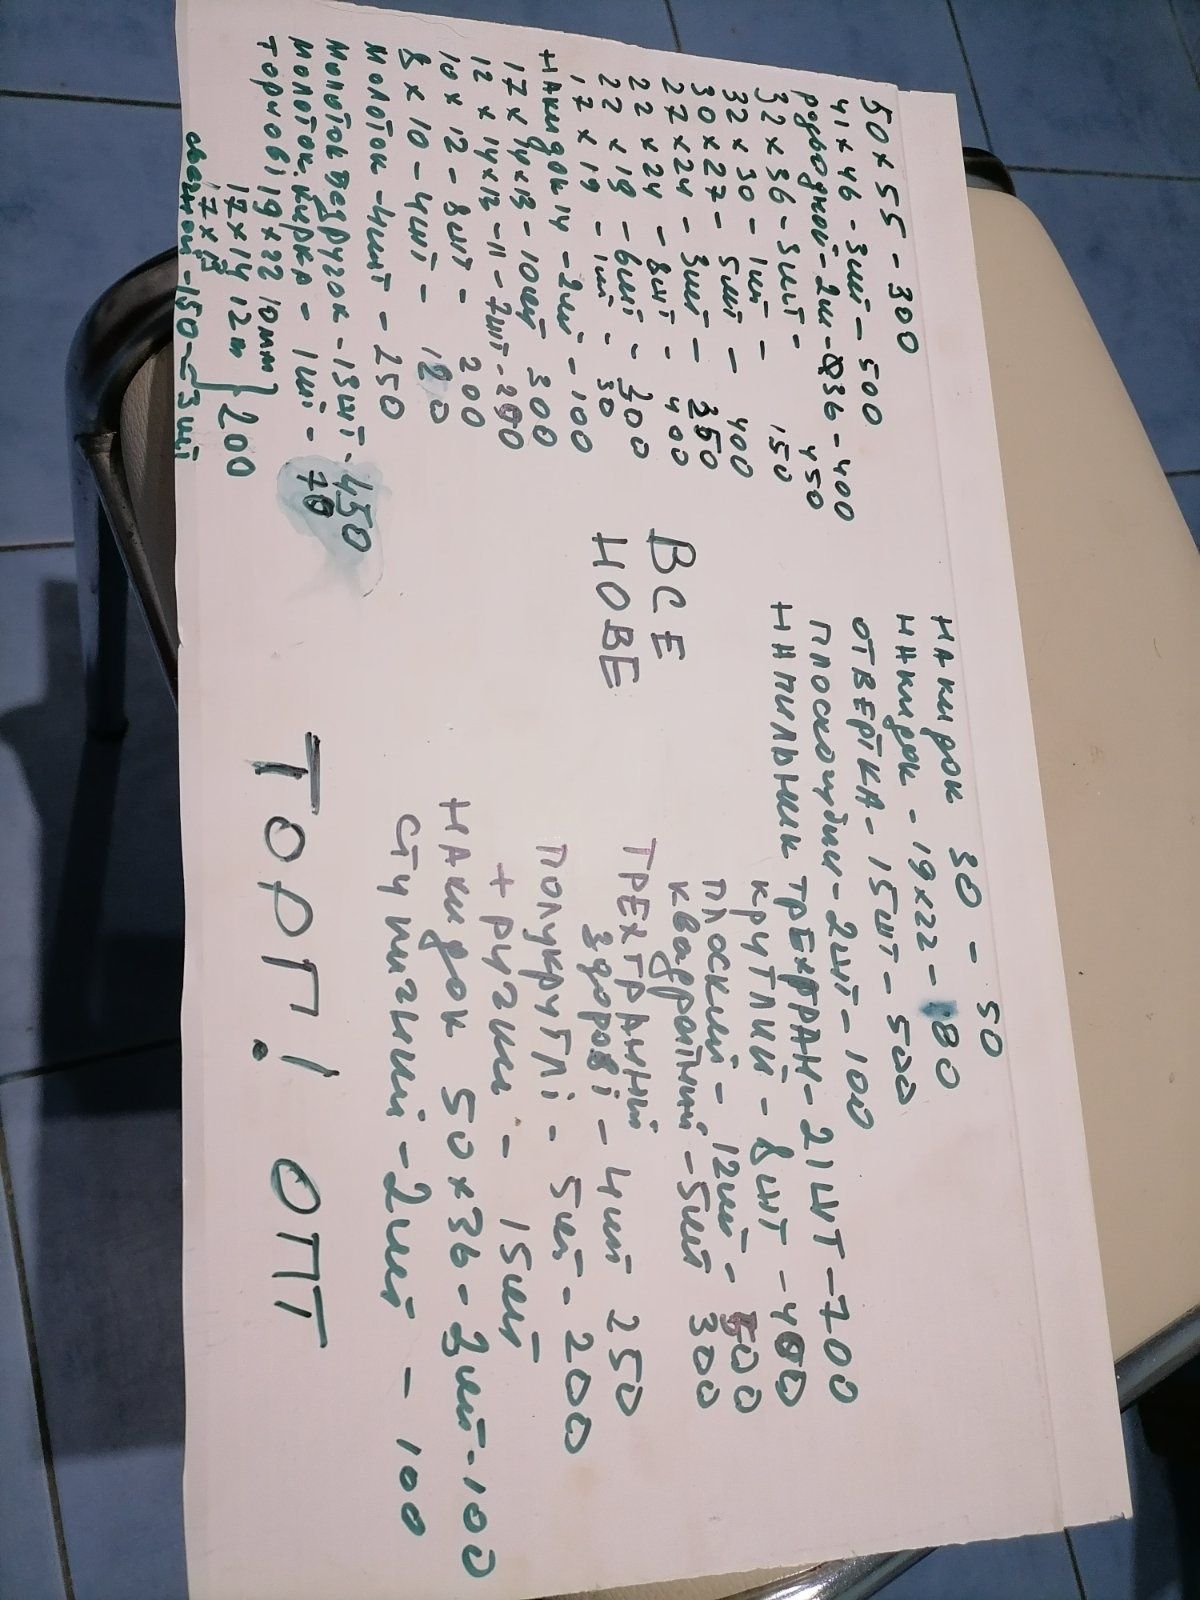 50 x 55 - 300
41 x 46 - 3шт - 500
розводной - 2шт - 36 - 400
32 x 36 - 3шт - 450
32 x 30 - 1шт - 150
30 x 27 - 5шт - 400
27 x 24 - 3шт - 350
22 x 24 - 8шт - 400
22 x 19 - 6шт - 300
17 x 19 - 1шт - 30
накидок 14 - 2шт - 100
17 x 14 x 13 - 10шт 300
12 x 14 x 12 - 11 - 7шт - 200
10 x 12 - 8шт - 200
8 x 10 - 4шт - 120
молоток - 4шт - 250
молоток без ручок - 13шт - 450
молоток кирка - 1шт - 70
торцові 19 x 22 10шт
17 x 14 12шт } 200
17 x 13
свечной - 150 - 23шт
ВСЕ
НОВЕ
накидок 30 - 50
накидок - 19x22 - 80
ОТВЕРТКА - 15шт - 500
плоскогубци - 2шт - 100
НАПИЛЬНИК ТРЕХГРАН - 21шт - 700
круглий - 8шт - 400
плоский - 12шт - 500
квадратний - 5шт 300
ТРЕХГРАННИЙ
здорові - 4шт 250
ПОЛУКРУГЛІ - 5шт - 200
+ ручки - 15шт
накидок 50x36 - 2шт - 100
ступичний - 2шт - 100
ТОРГ! ОПТ